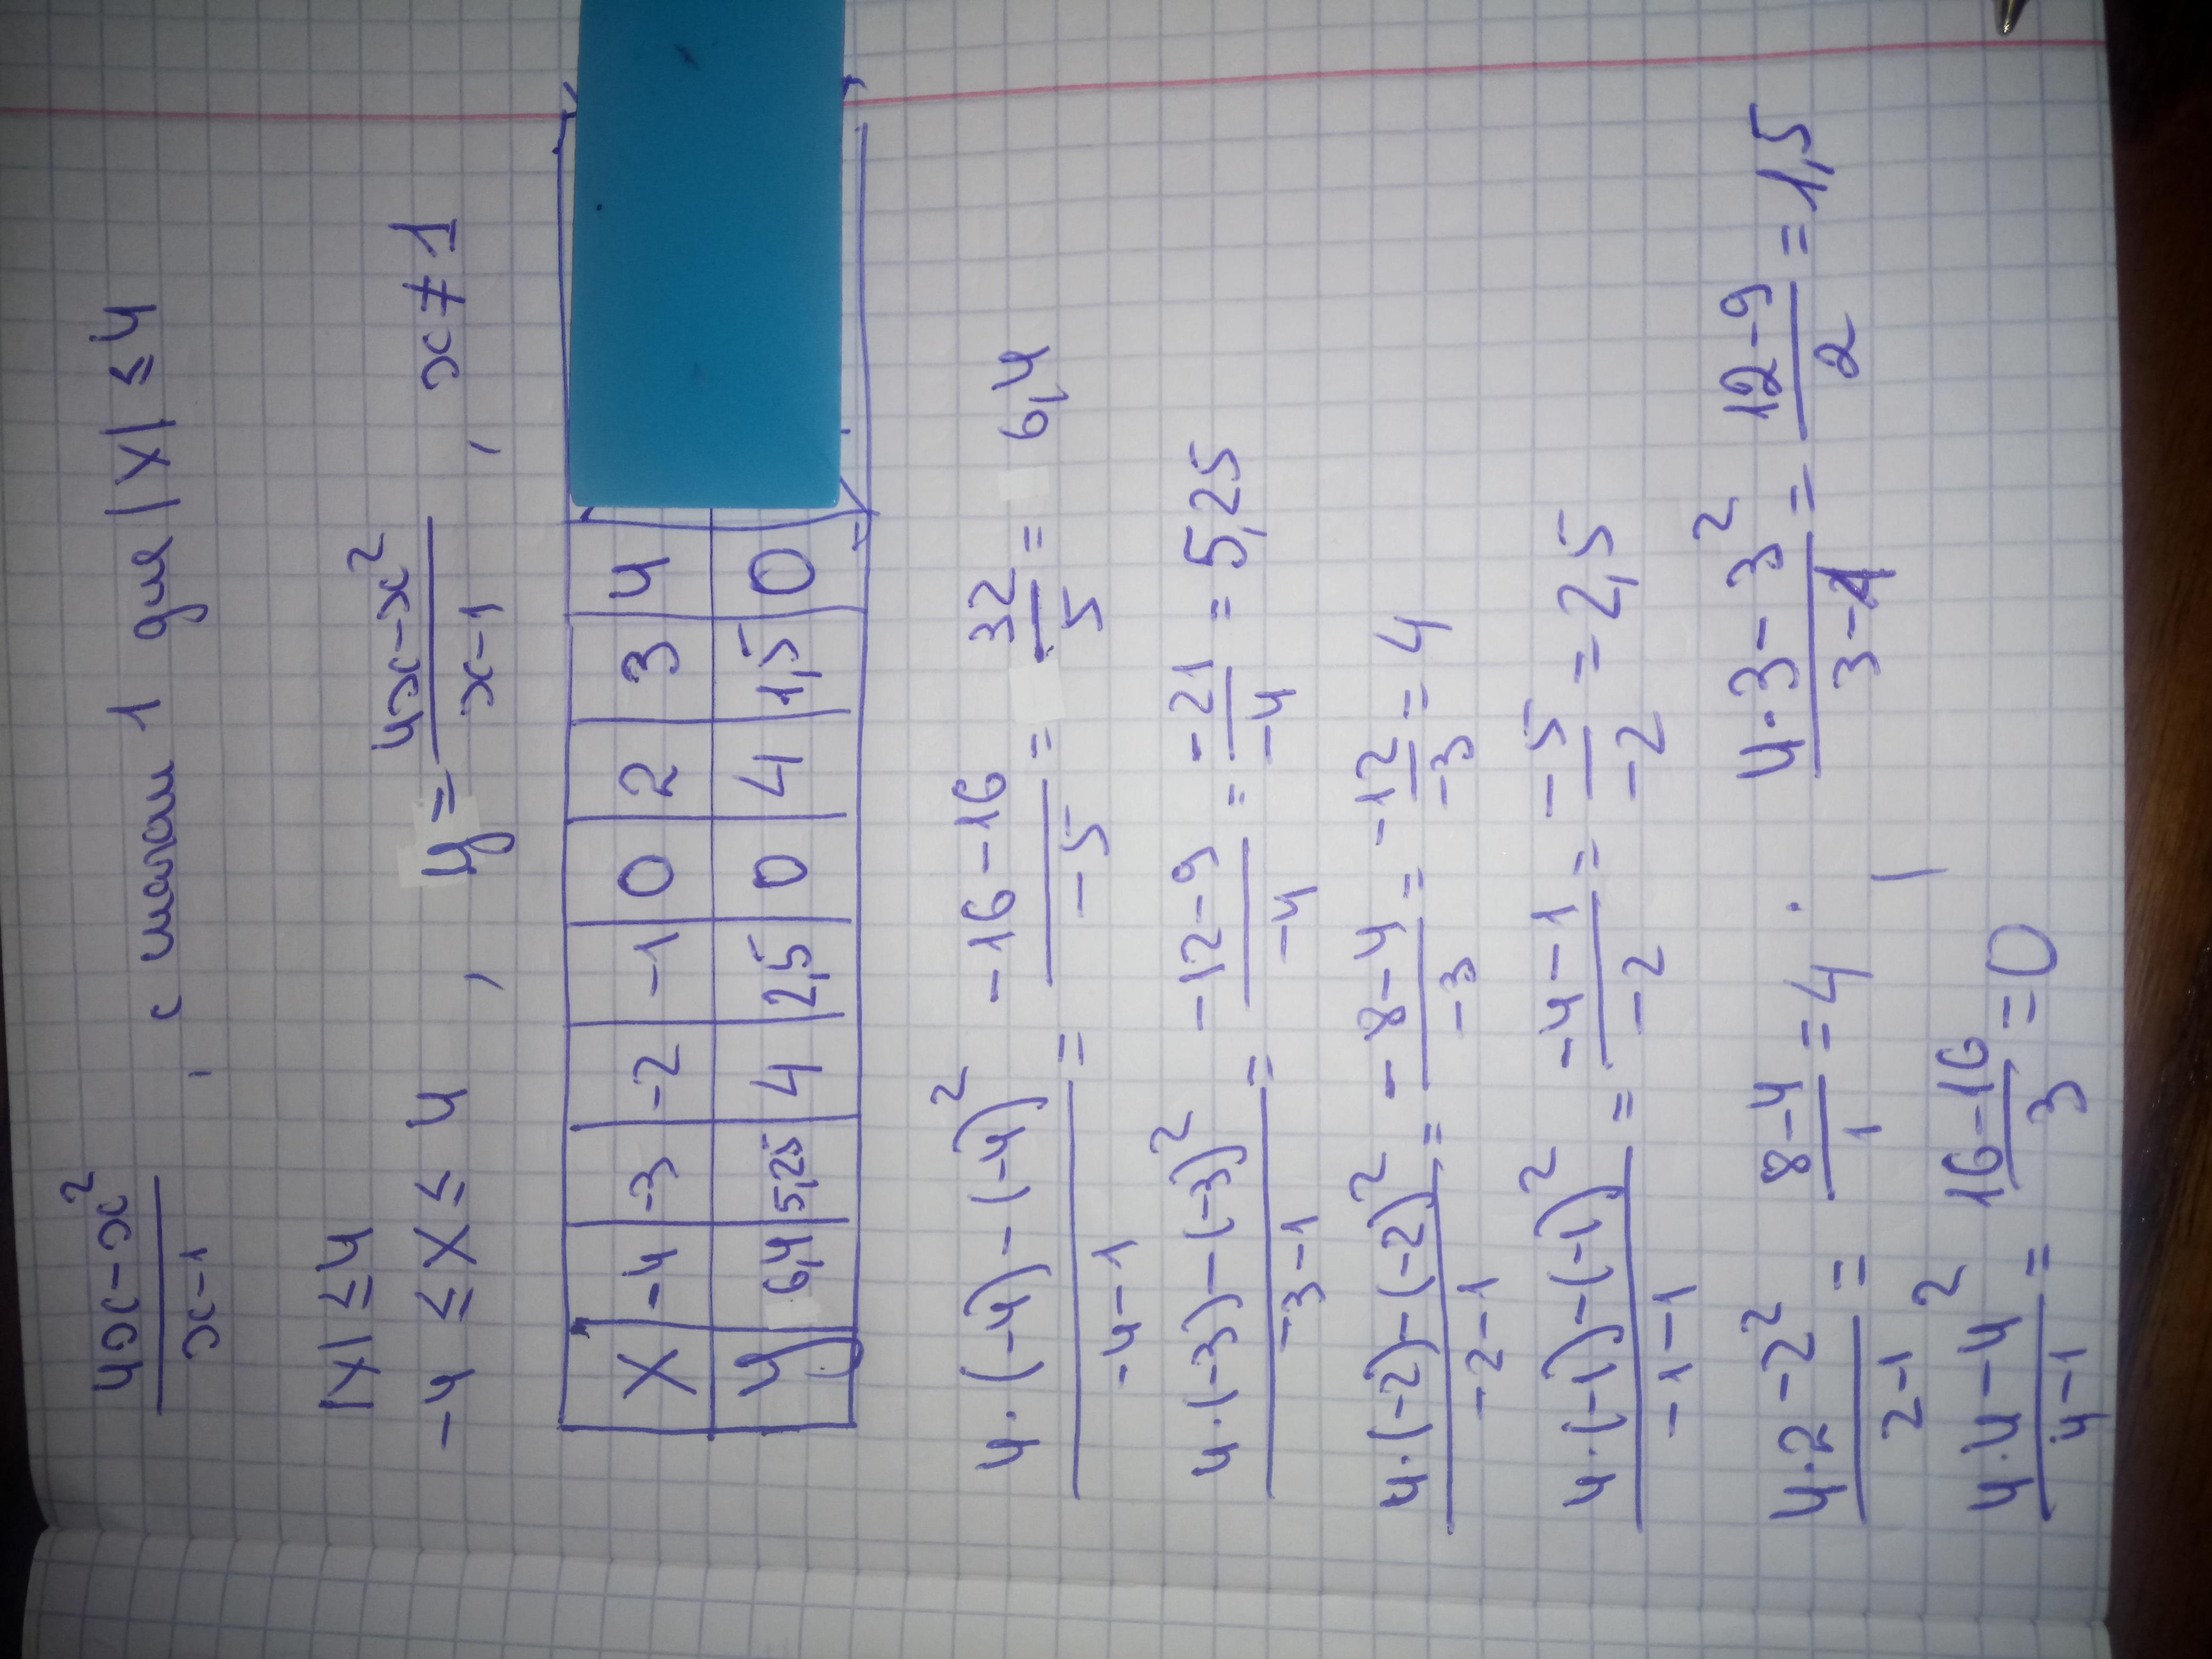 (4x-x²)/(x-1), с шагом 1 для |x| ≤ 4
|x| ≤ 4
-4 ≤ x ≤ 4, y = (4x-x²)/(x-1), x ≠ 1
x | -4 | -3 | -2 | -1 | 0 | 2 | 3 | 4
y | 6,4 | 5,25 | 4 | 2,5 | 0 | 4 | 1,5 | 0
(4·(-4)-(-4)²)/(-4-1) = (-16-16)/(-5) = 32/5 = 6,4
(4·(-3)-(-3)²)/(-3-1) = (-12-9)/(-4) = (-21)/(-4) = 5,25
(4·(-2)-(-2)²)/(-2-1) = (-8-4)/(-3) = (-12)/(-3) = 4
(4·(-1)-(-1)²)/(-1-1) = (-4-1)/(-2) = (-5)/(-2) = 2,5
(4·2-2²)/(2-1) = (8-4)/1 = 4. (4·3-3²)/(3-1) = (12-9)/2 = 1,5
(4·4-4²)/(4-1) = (16-16)/3 = 0